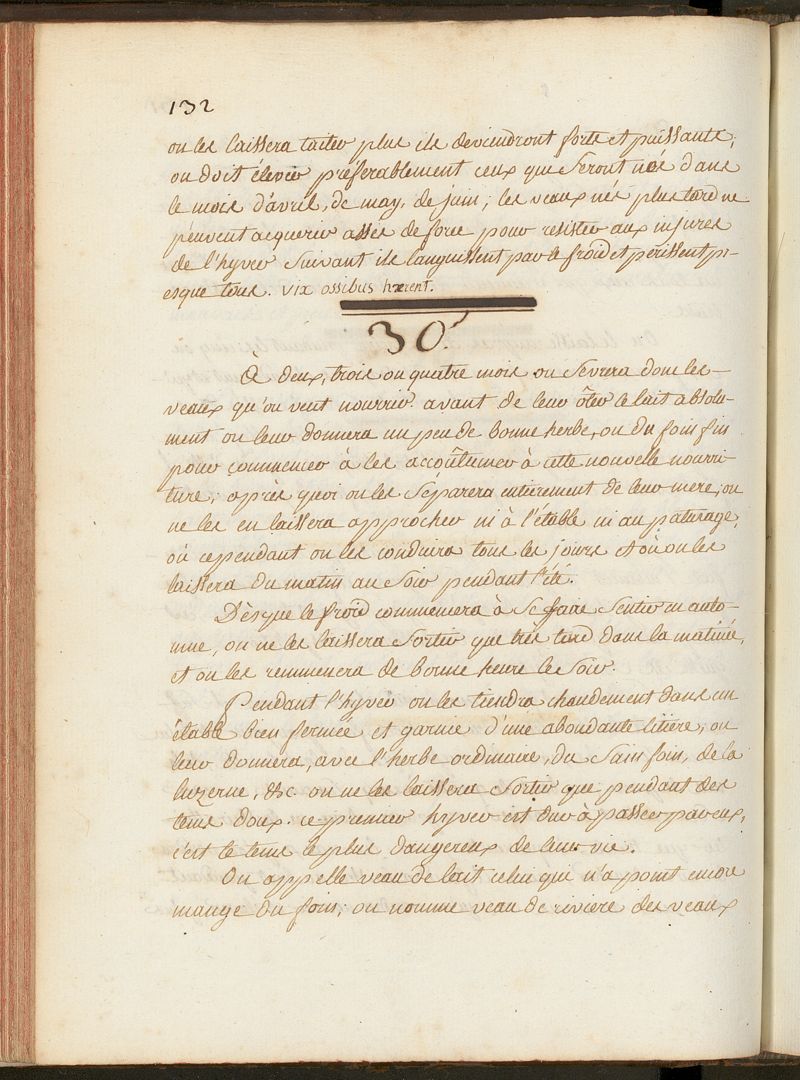 132
on les laissera taiter plus ils deviendront forts et puissants;
on doit élever préferablement ceux que seront nés dans
le mois d'avril, de may, de juin; les veaux nés plus tard ne
péuvent acquerir assés de force pour resister aux injures
de l'hyver suivant ils languissent par le froid et périssent pr-
esque tous. vix ossibus hærent.
30.
À deux, trois ou quatre mois on sevrera donc les
veaux qu'on veut nourrir. avant de leur ôter le lait absolu-
ment on leur donnera un peu de bonne herbe, ou du foin fin
pour commencer à les accoûtumer à cette nouvelle nourri-
ture; après quoi on les séparera entierement de leur mere; on
ne les en laissera approcher ni à l'étable ni au paturage,
où cependant on les conduira tous les jours et où on les
laissera du matin au soir pendant l'été.
Dès que le froid commencera à se faire sentir en auto-
mne, on ne les laissera sortir que très tard dans la matinée,
et on les remmenera de bonne heure le soir.
Pendant l'hyver on les tiendra chaudement dans un
étable bien fermée et garnie d'une abondante litière; on
leur donnera, avec l'herbe ordinaire, du sain foin, de la
luzerne, &c. on ne les laissera sortir que pendant des
tems doux. ce premier hyver est dur à passer par eux,
c'est le tems le plus dangereux de leur vie.
On appelle veau de lait celui qui n'a point encore
mangé du foin; on nomme veau de riviere des veaux